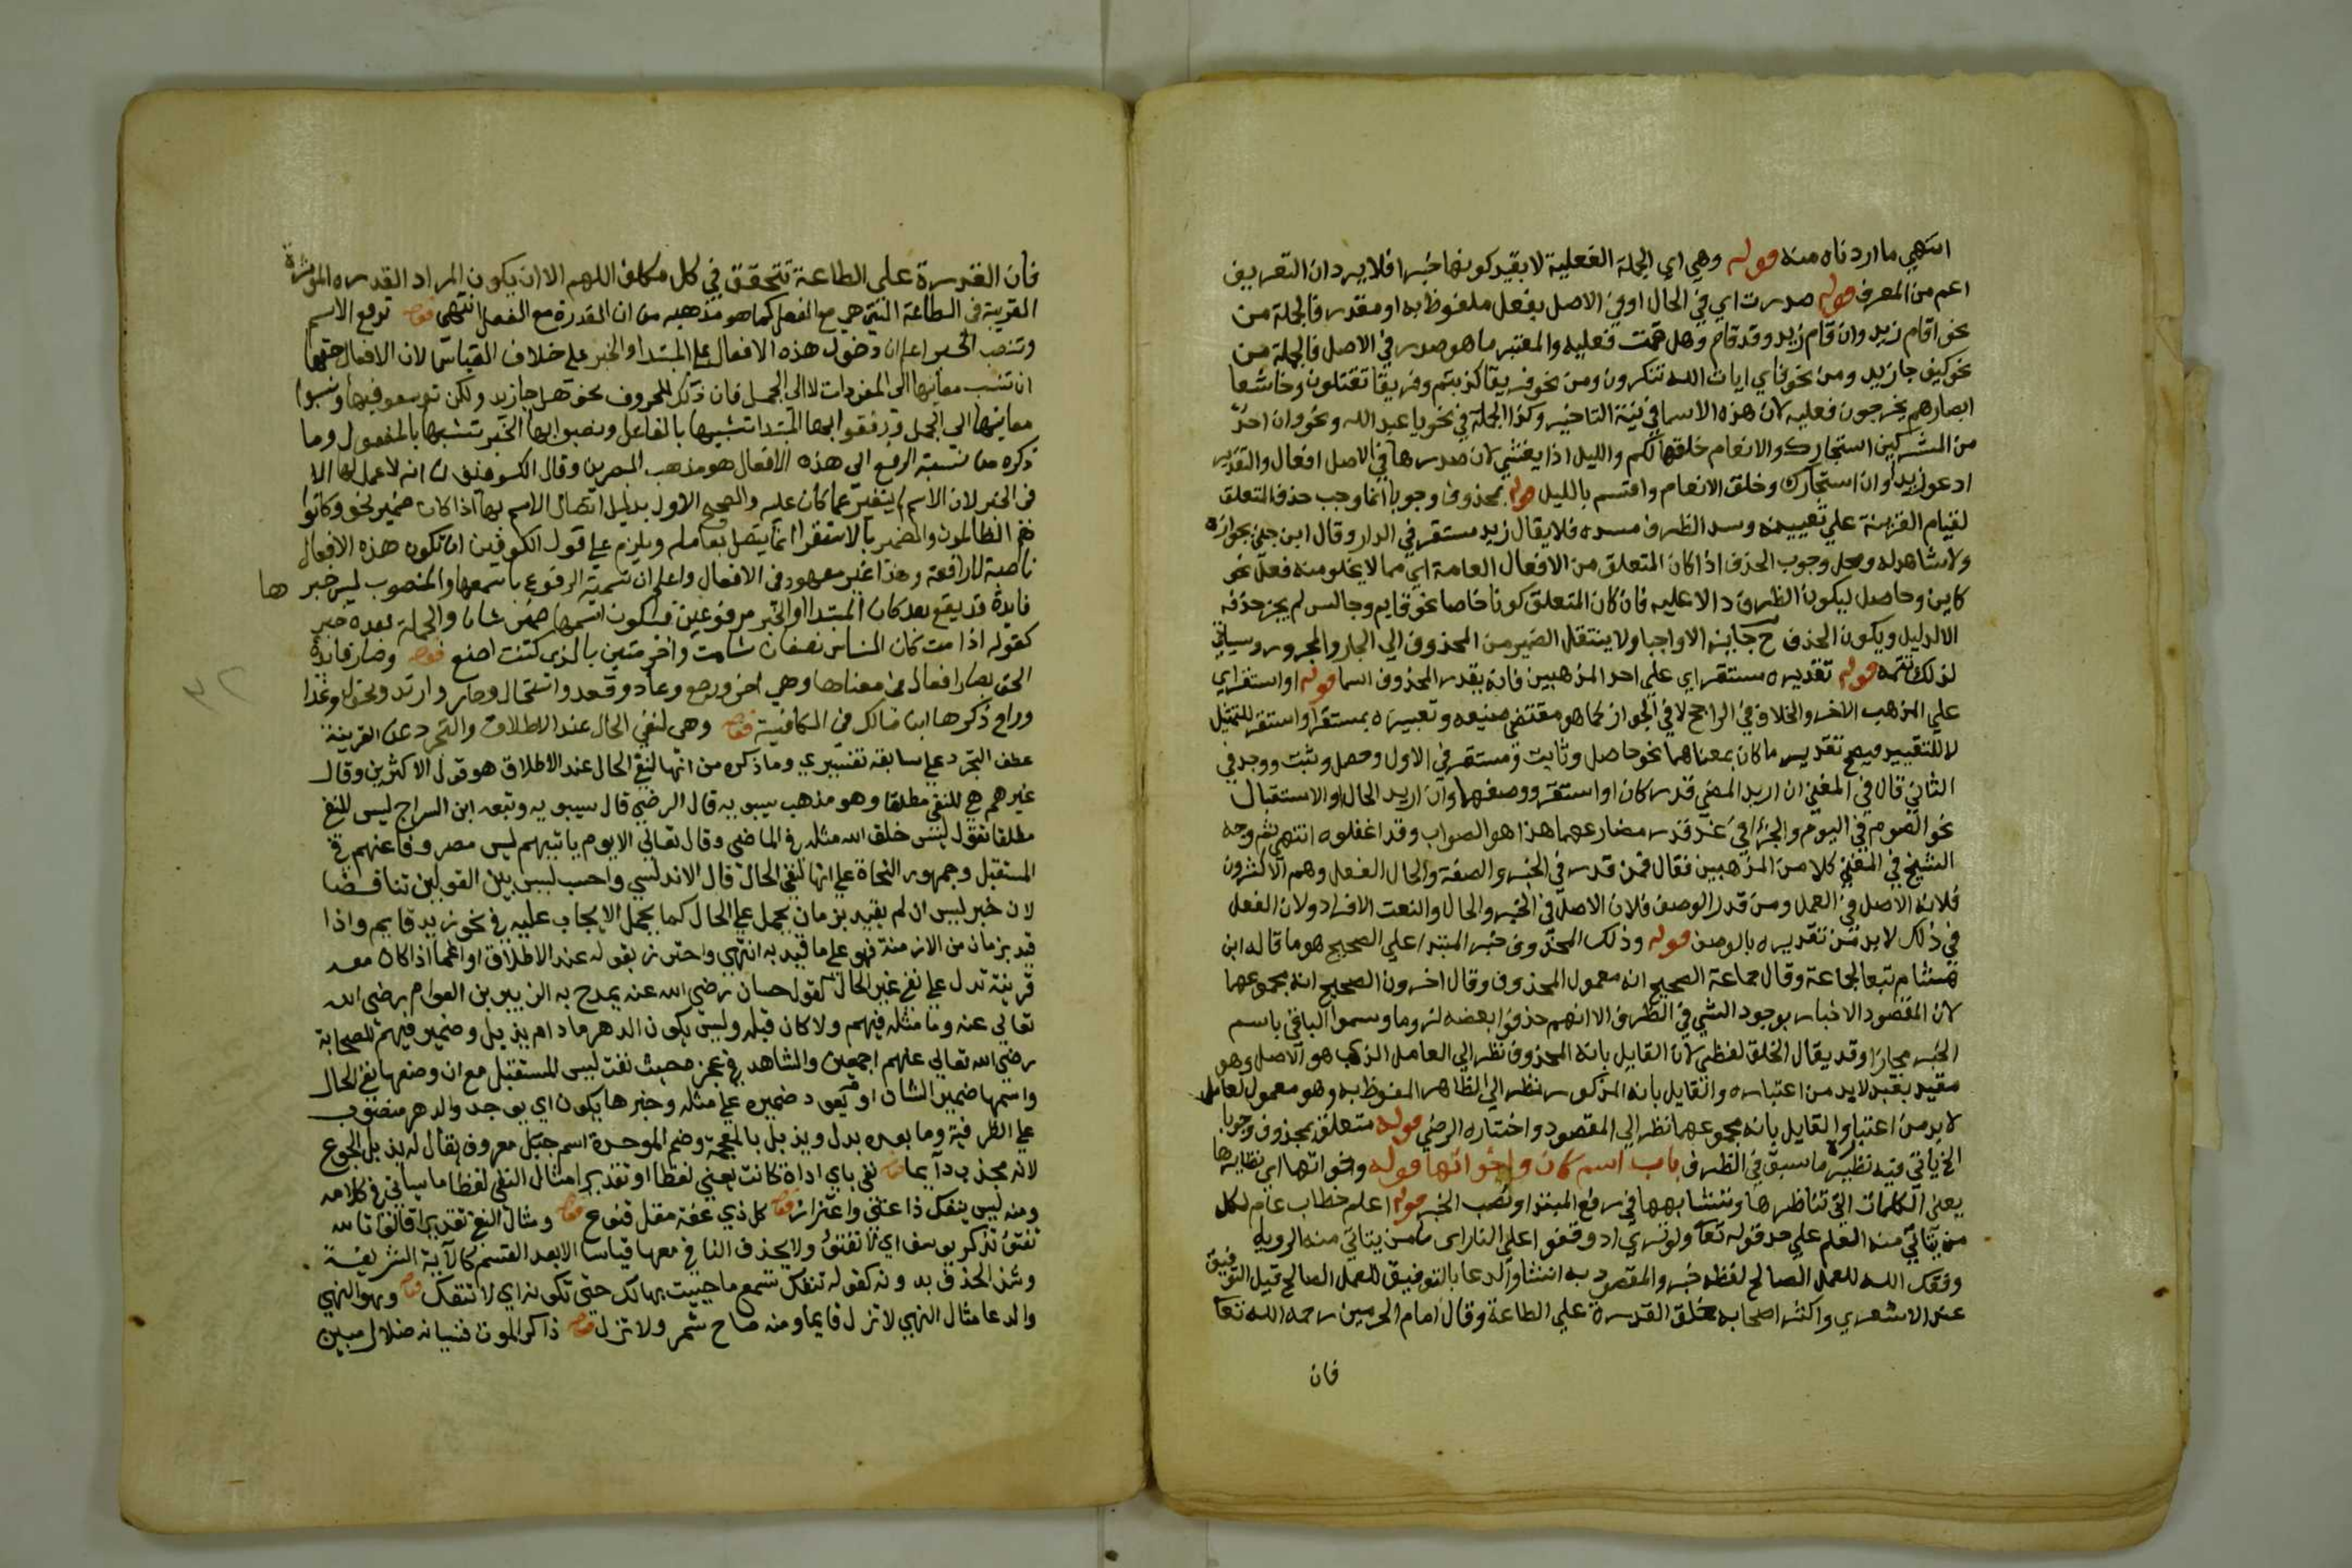 انتهي ما اردناه منه قوله وهي اي الجملة الفعلية لا بقيد كونها خبرا فلا يرد ان التعريف
اعم من المعرف قوله صدرت اي في الحال او في الاصل بفعل ملفوظ به او مقدر فالجملة من
نحو اقام زيد وان قام زيد وقد قام وهل قمت فعليه والمعتبر ما هو صدر في الاصل فالجملة من
نحو كيف جا زيد ومن نحو فاي ايات الله تنكرون ومن نحو فريقا كذبتم وفريقا تقتلون وخاشعا
ابصارهم يخرجون فعليه لان هذه الاسما في نية التاخير وكذا الجملة في نحو يا عبد الله ونحو وان احد
من المشركين استجارك والانعام خلقها لكم والليل اذا يغشي لان صدرها في الاصل افعال والتقدير
ادعو زيدا وان استجارك وخلق الانعام واقسم بالليل قوله بمحذوف وجوبا انما وجب حذف المتعلق
لقيام القرينة علي تعيينه وسد الظرف مسده فلا يقال زيد مستقر في الدار وقال ابن جني بجوازه
ولا شاهد له ومحل وجوب الحذف اذا كان المتعلق من الافعال العامة اي مما لا يخلو منه فعل نحو
كاين وحاصل ليكون الظرف دالا عليه فان كان المتعلق كونا خاصا نحو قايم وجالس لم يجز حذفه
الا لدليل ويكون الحذف ح جايزا لا واجبا ولا ينتقل الضمير من المحذوف الي الجار والمجرور وسياتي
لذلك تتمه قوله تقديره مستقر اي علي احد المذهبين فانه يقدر المحذوف اسما قوله او استقر اي
علي المذهب الاخر والخلاف في الراجح لا في الجواز كما هو مقتضي صنيعه وتعبيره بمستقر او استقر للتمثيل
لا للتقييد فيصح تقدير ما كان بمعناهما نحو حاصل وثابت ومستقر في الاول وحصل وثبت ووجد في
الثاني قال في المغني ان اريد المضي قدر كان او استقر ووصفهما وان اريد الحال او الاستقبال
نحو الصوم في اليوم والجزا في غد قدر مضارعهما هذا هو الصواب وقد اغفلوه انتهي ثم وجه
الشيخ في المغني كلا من المذهبين فقال فمن قدر في الخبر والصفة والحال الفعل وهم الاكثرون
فلانه الاصل في العمل ومن قدر الوصف فلان الاصل في الخبر والحال والنعت الافراد ولان الفعل
في ذلك لا بد من تقديره بالوصف قوله وذلك المحذوف خبر المبتدا علي الصحيح هو ما قاله ابن
هشام تبعا لجماعة وقال جماعة الصحيح انه معمول المحذوف وقال اخرون الصحيح انه مجموعهما
لان المقصود الاخبار بوجود الشي في الظرف الا انهم حذفوا بعضه لزوما وسموا الباقي باسم
الخبر مجازا وقد يقال الخلق لفظي لان القايل بانه المحذوف نظر الي العامل الذي هو الاصل وهو
مقيد بقيد لا بد من اعتباره والقايل بانه المذكور نظر الي الظاهر الملفوظ به وهو معمول لعامل
لا بد من اعتباره والقايل بانه مجموعهما نظر الي المقصود واختاره الرضي قوله متعلق بمحذوف وجوبا
الخ ياتي فيه نظير ما سبق في الظرف باب اسم كان واخواتها قوله واخواتها اي نظايرها
يعني الكلمات التي تناظرها وتشابهها في رفع المبتدا ونصب الخبر قوله اعلم خطاب عام لكل
من يتاتي منه العلم علي حد قوله تعا ولو تري اذ وقفوا علي النار اي كل من يتاتي منه الروية
وفقك الله للعمل الصالح لفظه خبر والمقصود به انشا والدعا بالتوفيق للعمل الصالح قيل التوفيق
عند الاشعري واكثر اصحابه خلق القدرة علي الطاعة وقال امام الحرمين رحمه الله تعا
فان
فان القدرة على الطاعة تتحقق في كل مكلف اللهم الا ان يكون المراد القدره المؤثرة
القريبة فى الطاعة التي هي مع الفعل كما هو مذهبه من ان القدرة مع الفعل انتهى قوله ترفع الاسم
وتنصب الخبر اعلم ان دخول هذه الافعال على المبتدا والخبر على خلاف القياس لان الافعال حقها
ان تنسب معانيها الى المفردات لا الى الجمل فان ذلك للحروف نحو هل جا زيد ولكن توسعوا فيها ونسبوا
معانيها الى الجمل فرفعوا بها المبتدا تشبيها بالفاعل ونصبوا بها الخبر تشبيها بالمفعول وما
ذكره من نسبة الرفع الى هذه الافعال هو مذهب البصرين وقال الكوفيون انه لا عمل لها الا
فى الخبر لان الاسم لم يتغير عما كان عليه والصحيح الاول بدليل اتصال الاسم بها اذا كان ضمير نحو وكانوا
هم الظالمون والضمير بالاستقرا انما يتصل بعامله ويلزم على قول الكوفين ان تكون هذه الافعال
ناصبة لا رافعة وهذا غير معهود فى الافعال واعلم ان تسمية المرفوع باسمها والمنصوب ليس خبر ها
فايدة قد يقع بعد كان المبتدا والخبر مرفوعين فيكون اسمها ضمير شان والجملة بعده خبر
كقوله اذا مت كان الناس نصفان شامت واخر مثن بالذى كنت اصنع قوله وصار فايدة
الحق بصار افعال فى معناها وهي اض ورجع وعاد وقعد واستحال وحار وارتد وتحول وغدا
وراح ذكرها ابن مالك فى الكافية قوله وهى لنفي الحال عند الاطلاق والتجرد عن القرينة
عطف التجرد على سابقه تفسيري وما ذكره من انها لنفي الحال عند الاطلاق هو قول الاكثرين وقال
غيرهم هي للنفي مطلقا وهو مذهب سيبويه قال الرضي قال سيبويه وتبعه ابن السراج ليس للنفي
مطلقا تقول ليس خلق الله مثله في الماضي وقال تعالي الا يوم ياتيهم ليس مصروفا عنهم في
المستقبل وجمهور النحاة على انها لنفي الحال قال الاندلسي واحسب ليس بين القولين تناقضا
لان خبر ليس ان لم يقيد بزمان يحمل على الحال كما يحمل الايجاب عليه في نحو زيد قايم واذا
قيد بزمان من الازمنة فهو على ما قيد به انتهي واحترز بقوله عند الاطلاق اه عما اذا كان معه
قرينة تدل على نفي غير الحال كقول حسان رضي الله عنه يمدح به الزبير بن العوام رضي الله
تعالي عنه وما مثله فيهم ولا كان قبله وليس يكون الدهر ما دام يذبل وضمير فيهم للصحابة
رضي الله تعالي عنهم اجمعين والشاهد في عجزه حيث نفت ليس المستقبل مع ان وضعها نفي الحال
واسمها ضمير الشان او يعود ضميره على مثله وخبرها يكون اي يوجد والدهر منصوب
على الظرفية وما بعده بدل ويذبل بالمعجمة وضم الموحدة اسم جبل معروف يقال له يذبل الجوع
لانه مجدب دايما قوله نفي باي اداة كانت يعني لفظا او تقديرا مثال النفي لفظا ما سياتي في كلامه
ومنه ليس ينفك ذا غني واعتزاز قوله كل ذي عفة مقل قنوع قوله ومثال النفي تقديرا قالوا تالله
تفتؤ تذكر يوسف اي لا تفتؤ ولا يحذف النافي معها قياسا الا بعد القسم كالآية الشريفة
وشذ الحذف بدونه كقوله تنفك تسمع ما حييت بهالك حتى تكونه اي لا تنفك قوله وهو النهي
والدعا مثال النهي لا تزل قايما ومنه صاح شمر ولا تزل قوله ذاكر الموت فنسيانه ضلال مبين